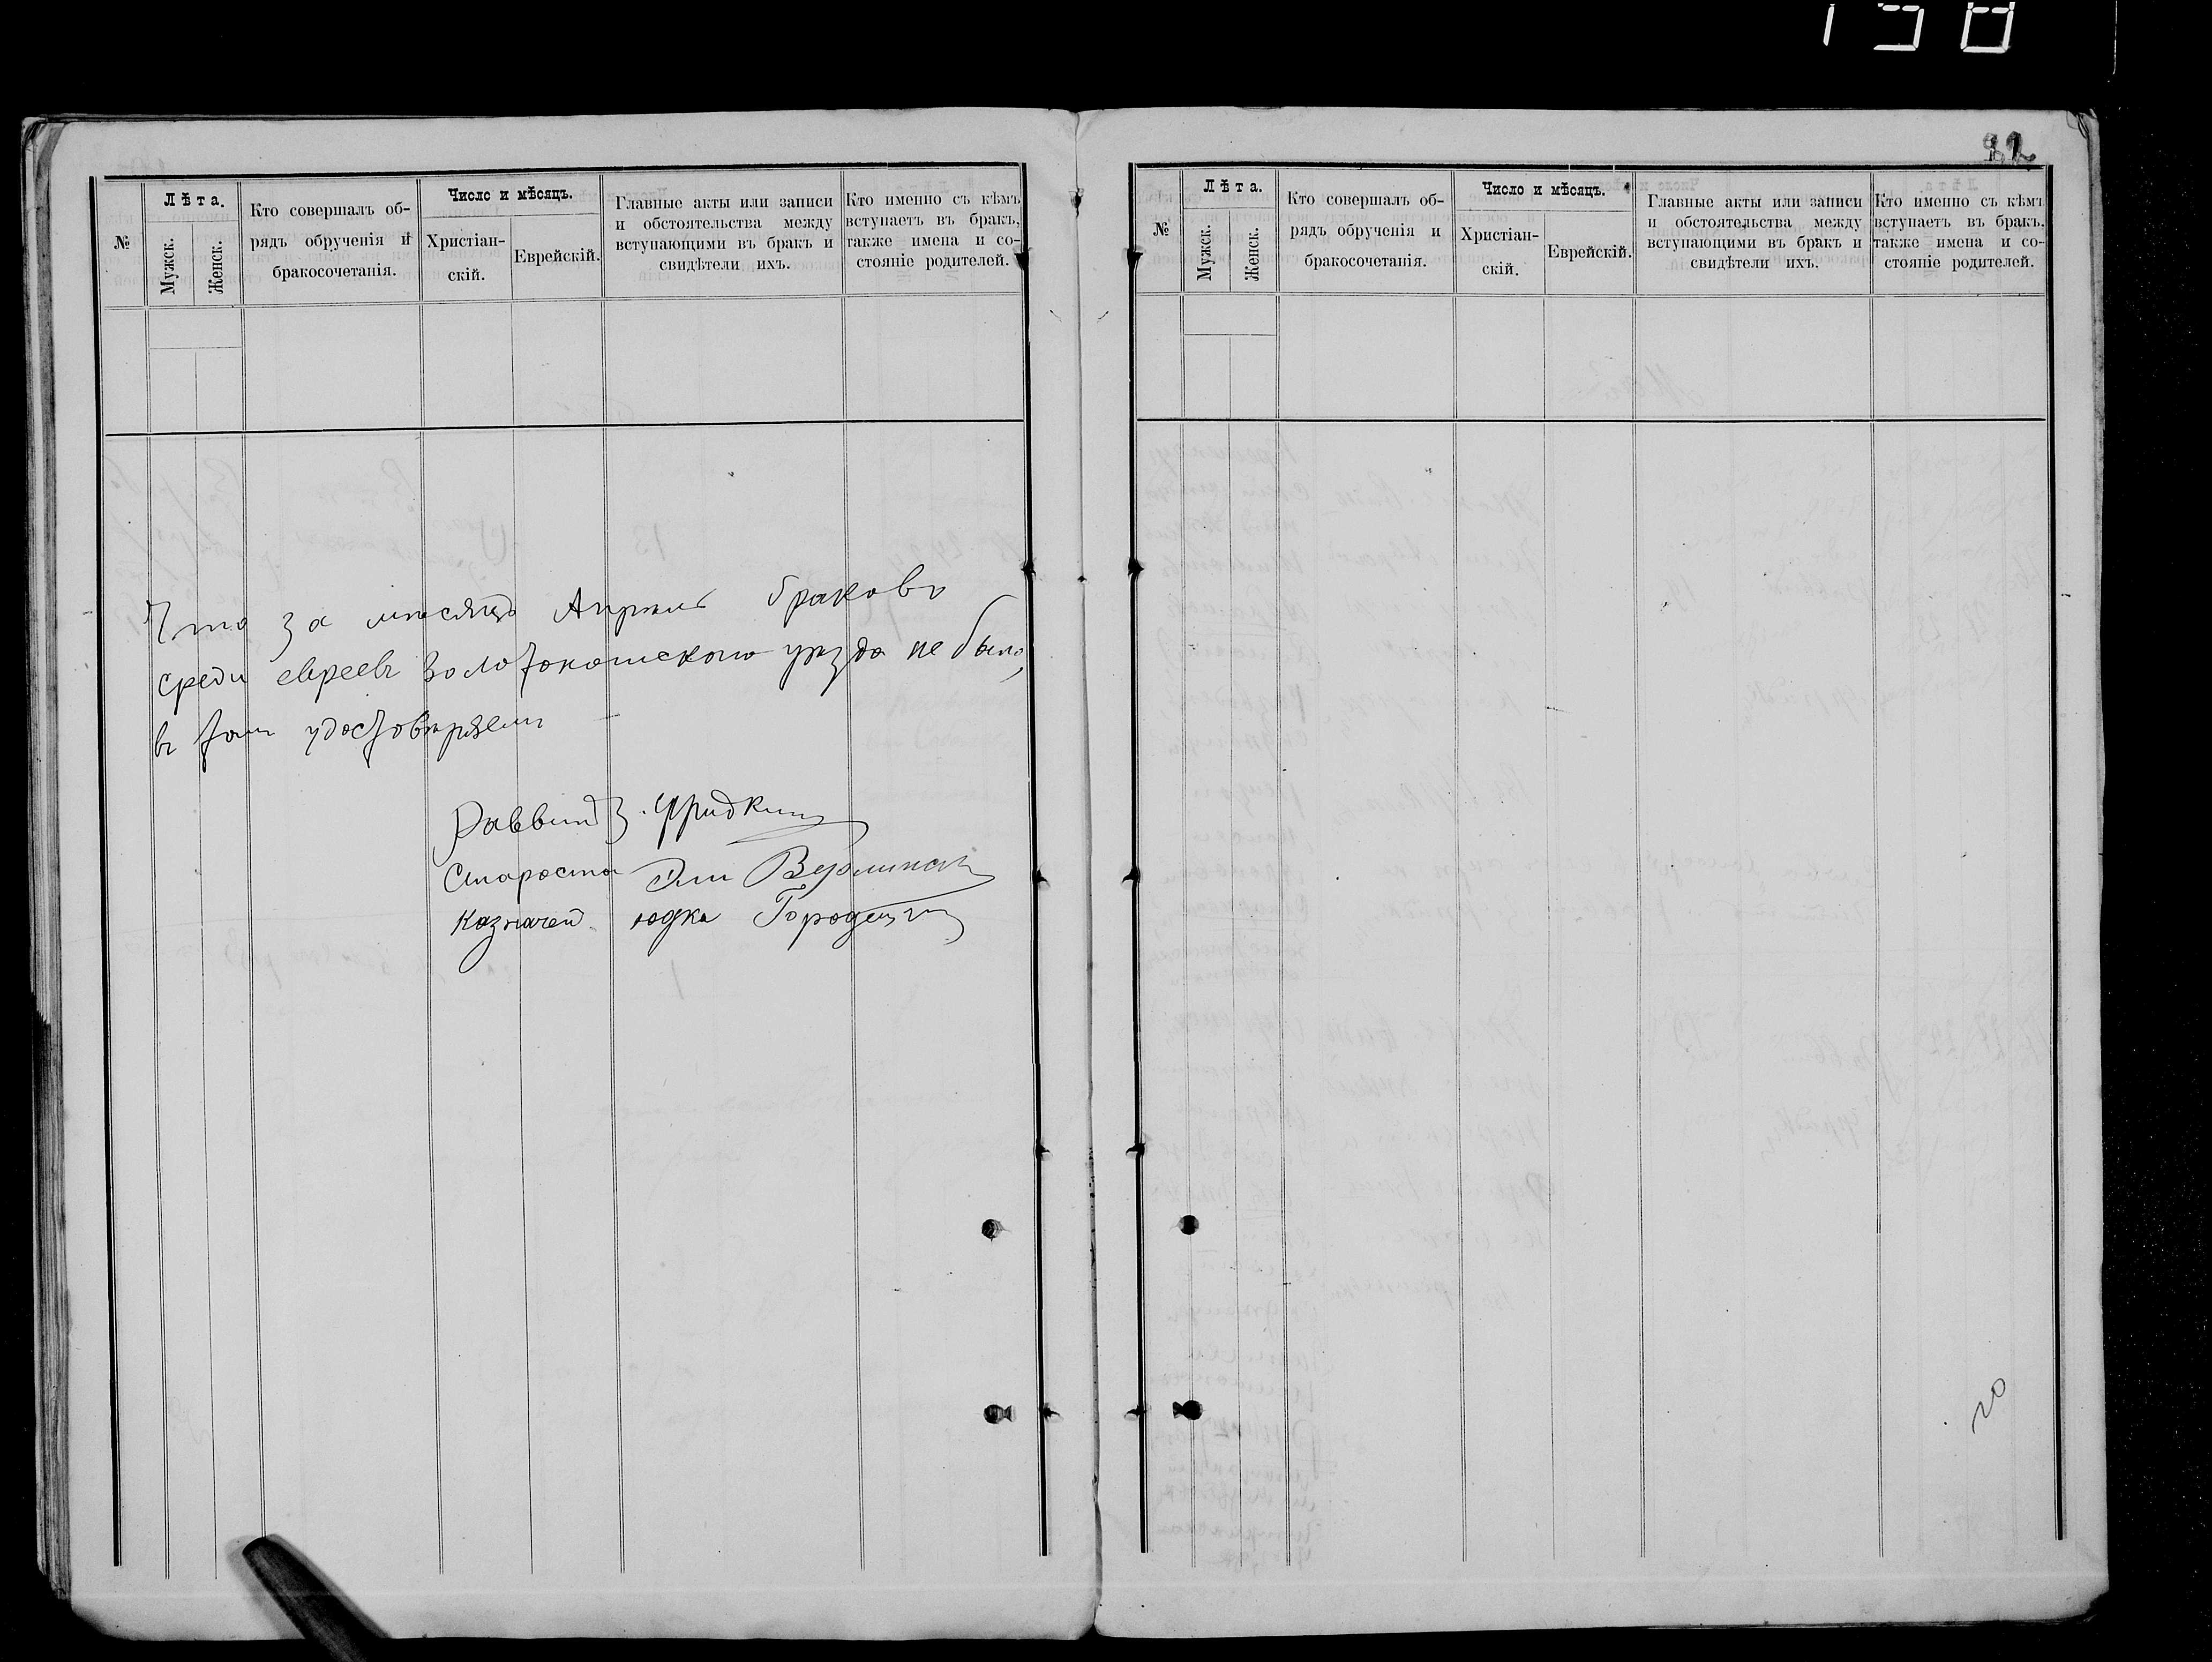 198
32
№
Лѣта.
Мужск.
Женск.
Кто совершалъ об-
рядъ обрученія и
бракосочетанія.
Число и мѣсяцъ.
Христіан-
скій.
Еврейскій.
Главные акты или записи
и обстоятельства между
вступающими въ бракъ и
свидѣтели ихъ.
Кто именно съ кѣмъ
вступаетъ въ бракъ,
также имена и со-
стояніе родителей.
Что за мѣсяцъ Апрѣль браковъ
среди евреевъ Золотоношскаго уѣзда не было,
въ томъ удостовѣряемъ
Раввинъ З. Фридкинъ
Староста Эли
Казначей Юдка Городецкій
№
Лѣта.
Мужск.
Женск.
Кто совершалъ об-
рядъ обрученія и
бракосочетанія.
Число и мѣсяцъ.
Христіан-
скій.
Еврейскій.
Главные акты или записи
и обстоятельства между
вступающими въ бракъ и
свидѣтели ихъ.
Кто именно съ кѣмъ
вступаетъ въ бракъ,
также имена и со-
стояніе родителей.